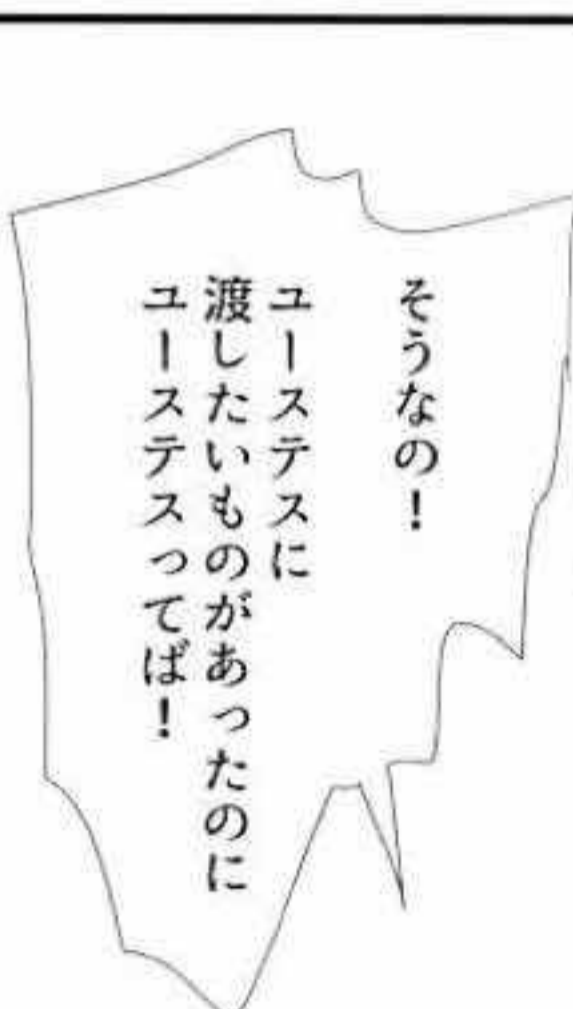 そうなの！
ユーステスに
渡したいものがあったのに
ユーステスってば！